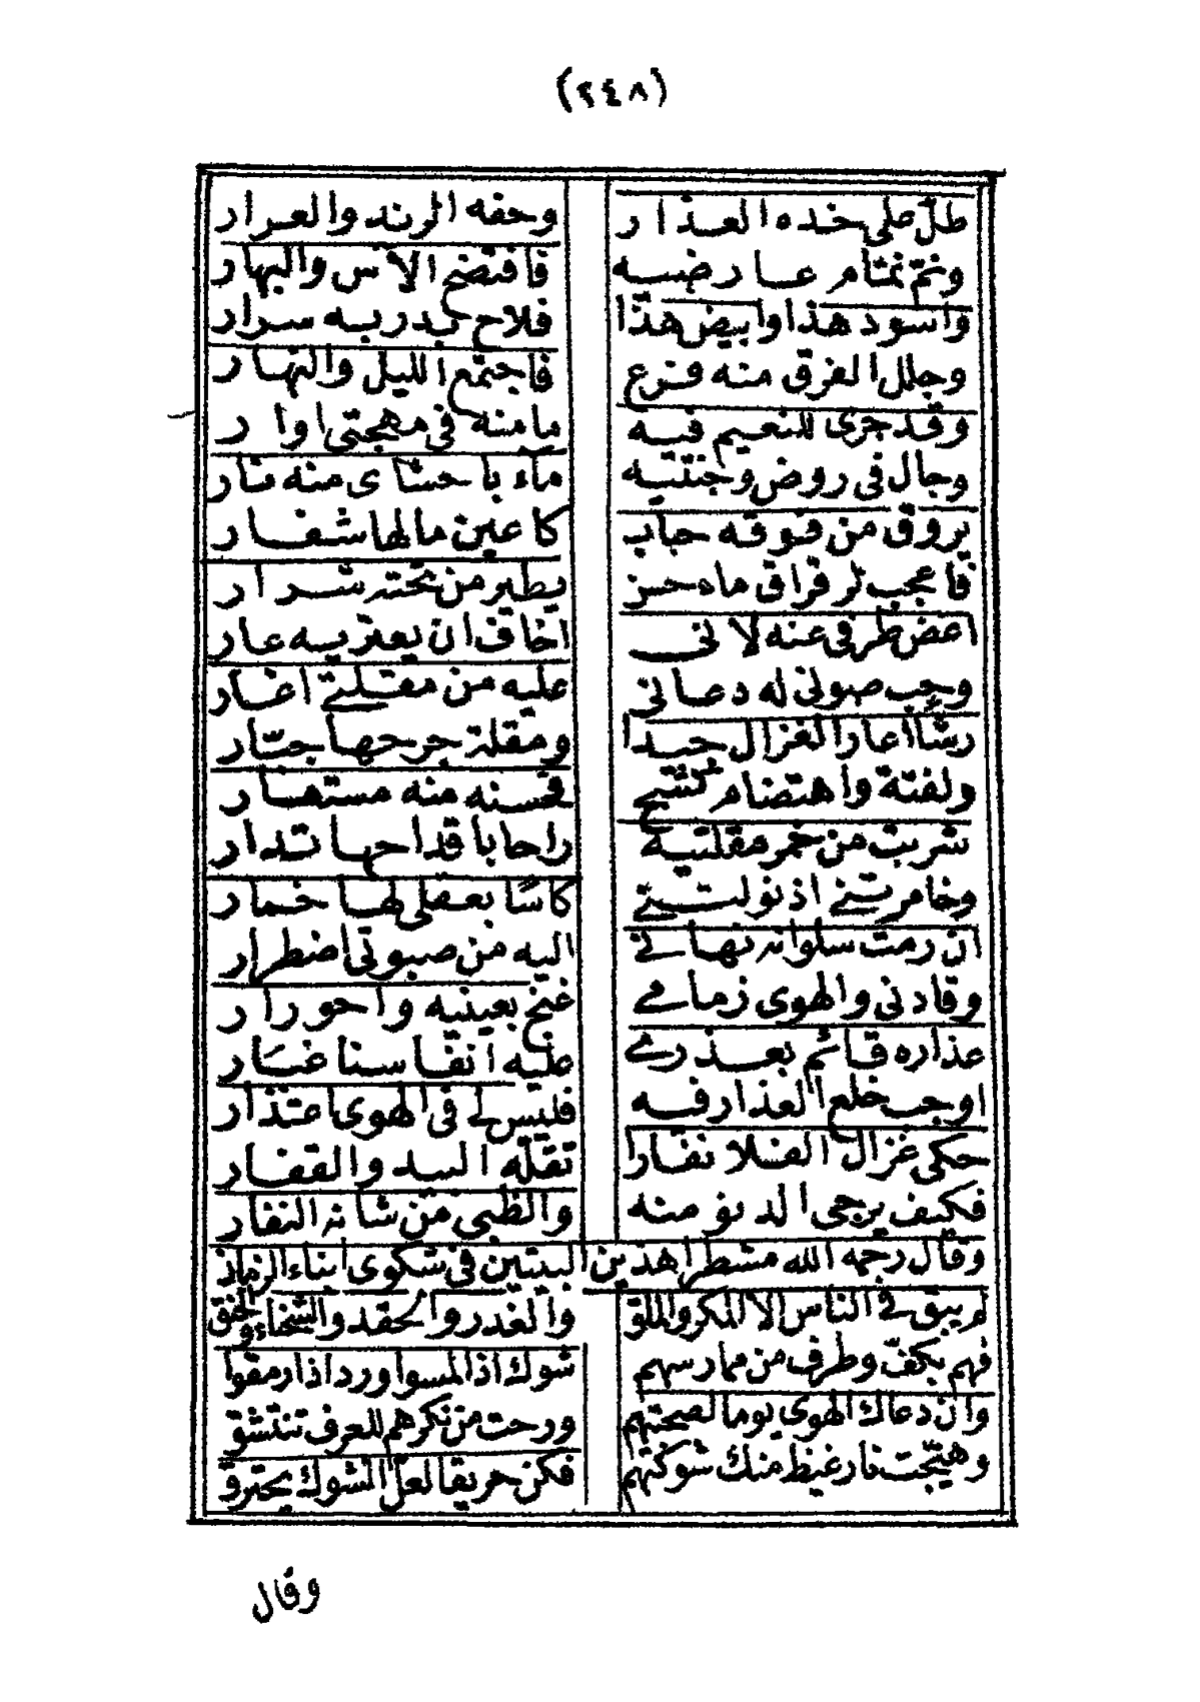 (٢٤٨)
طلّ على خده العذار وحفه الرند والعرار
ونمّ نمّام عارضه فافتضح الآس والبهار
واسود هذا وابيض هذا فلاح بدر به سرار
وجلل الفرق منه فرع فاجتمع الليل والنهار
وقد جرى للنعيم فيه ما منه في مهجتي اوار
وجال في روض وجنتيه ماء باحشاى منه نار
يروق من فوقه حباب كاعين ما لها شفار
فاعجب لرقراق ماء حسن يطير من تحته شرار
اغض طرفى عنه لانى اخاف ان يعتريه عار
وجب صونى له دعانى عليه من مقلتي اغار
رشأ اعار الغزال جيدا ومقلة جرحها جبّار
ولفتة واهتضام كشح فحسنه منه مستعار
شربت من خمر مقلتيه راحا باقداحها تدار
وخامرتني اذ نولتني كاسًا بعقلى لها خمار
ان رمت سلوانه نهاني اليه من صبوتى اضطرار
وقادنى والهوى زمامي غنج بعينيه واحورار
عذاره قائم بعذري عليه انفاسنا غبار
اوجب خلع العذار فيه فليس لي فى الهوى اعتذار
حكى غزال الفلا نفارا تقلّه البيد والقفار
فكيف يرجى الدنو منه والظبى من شانه النفار
وقال رحمه الله مشطرا هذين البيتين فى شكوى ابناء الزمان
لم يبق في الناس الا المكر والملق والغدر والحقد والشحناء والحنق
فهم بكفّ وطرف من ممارسهم شوك اذا لمسوا ورد اذا رمقوا
وان دعاك الهوى يوما لصحبتهم ورحت من نكرهم للعرف تنتشق
وهيّجت نار غيظ منك شوكتهم فكن حريقا لعلّ الشوك يحترق
وقال